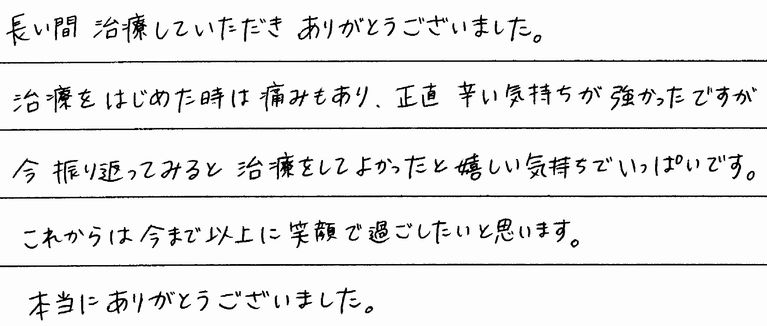 長い間 治療していただき ありがとうございました。
治療を はじめた時は 痛みもあり、正直 辛い気持ちが 強かったですが
今 振り返ってみると 治療をしてよかったと 嬉しい気持ちでいっぱいです。
これからは 今まで以上に 笑顔で過ごしたいと思います。
本当に ありがとうございました。